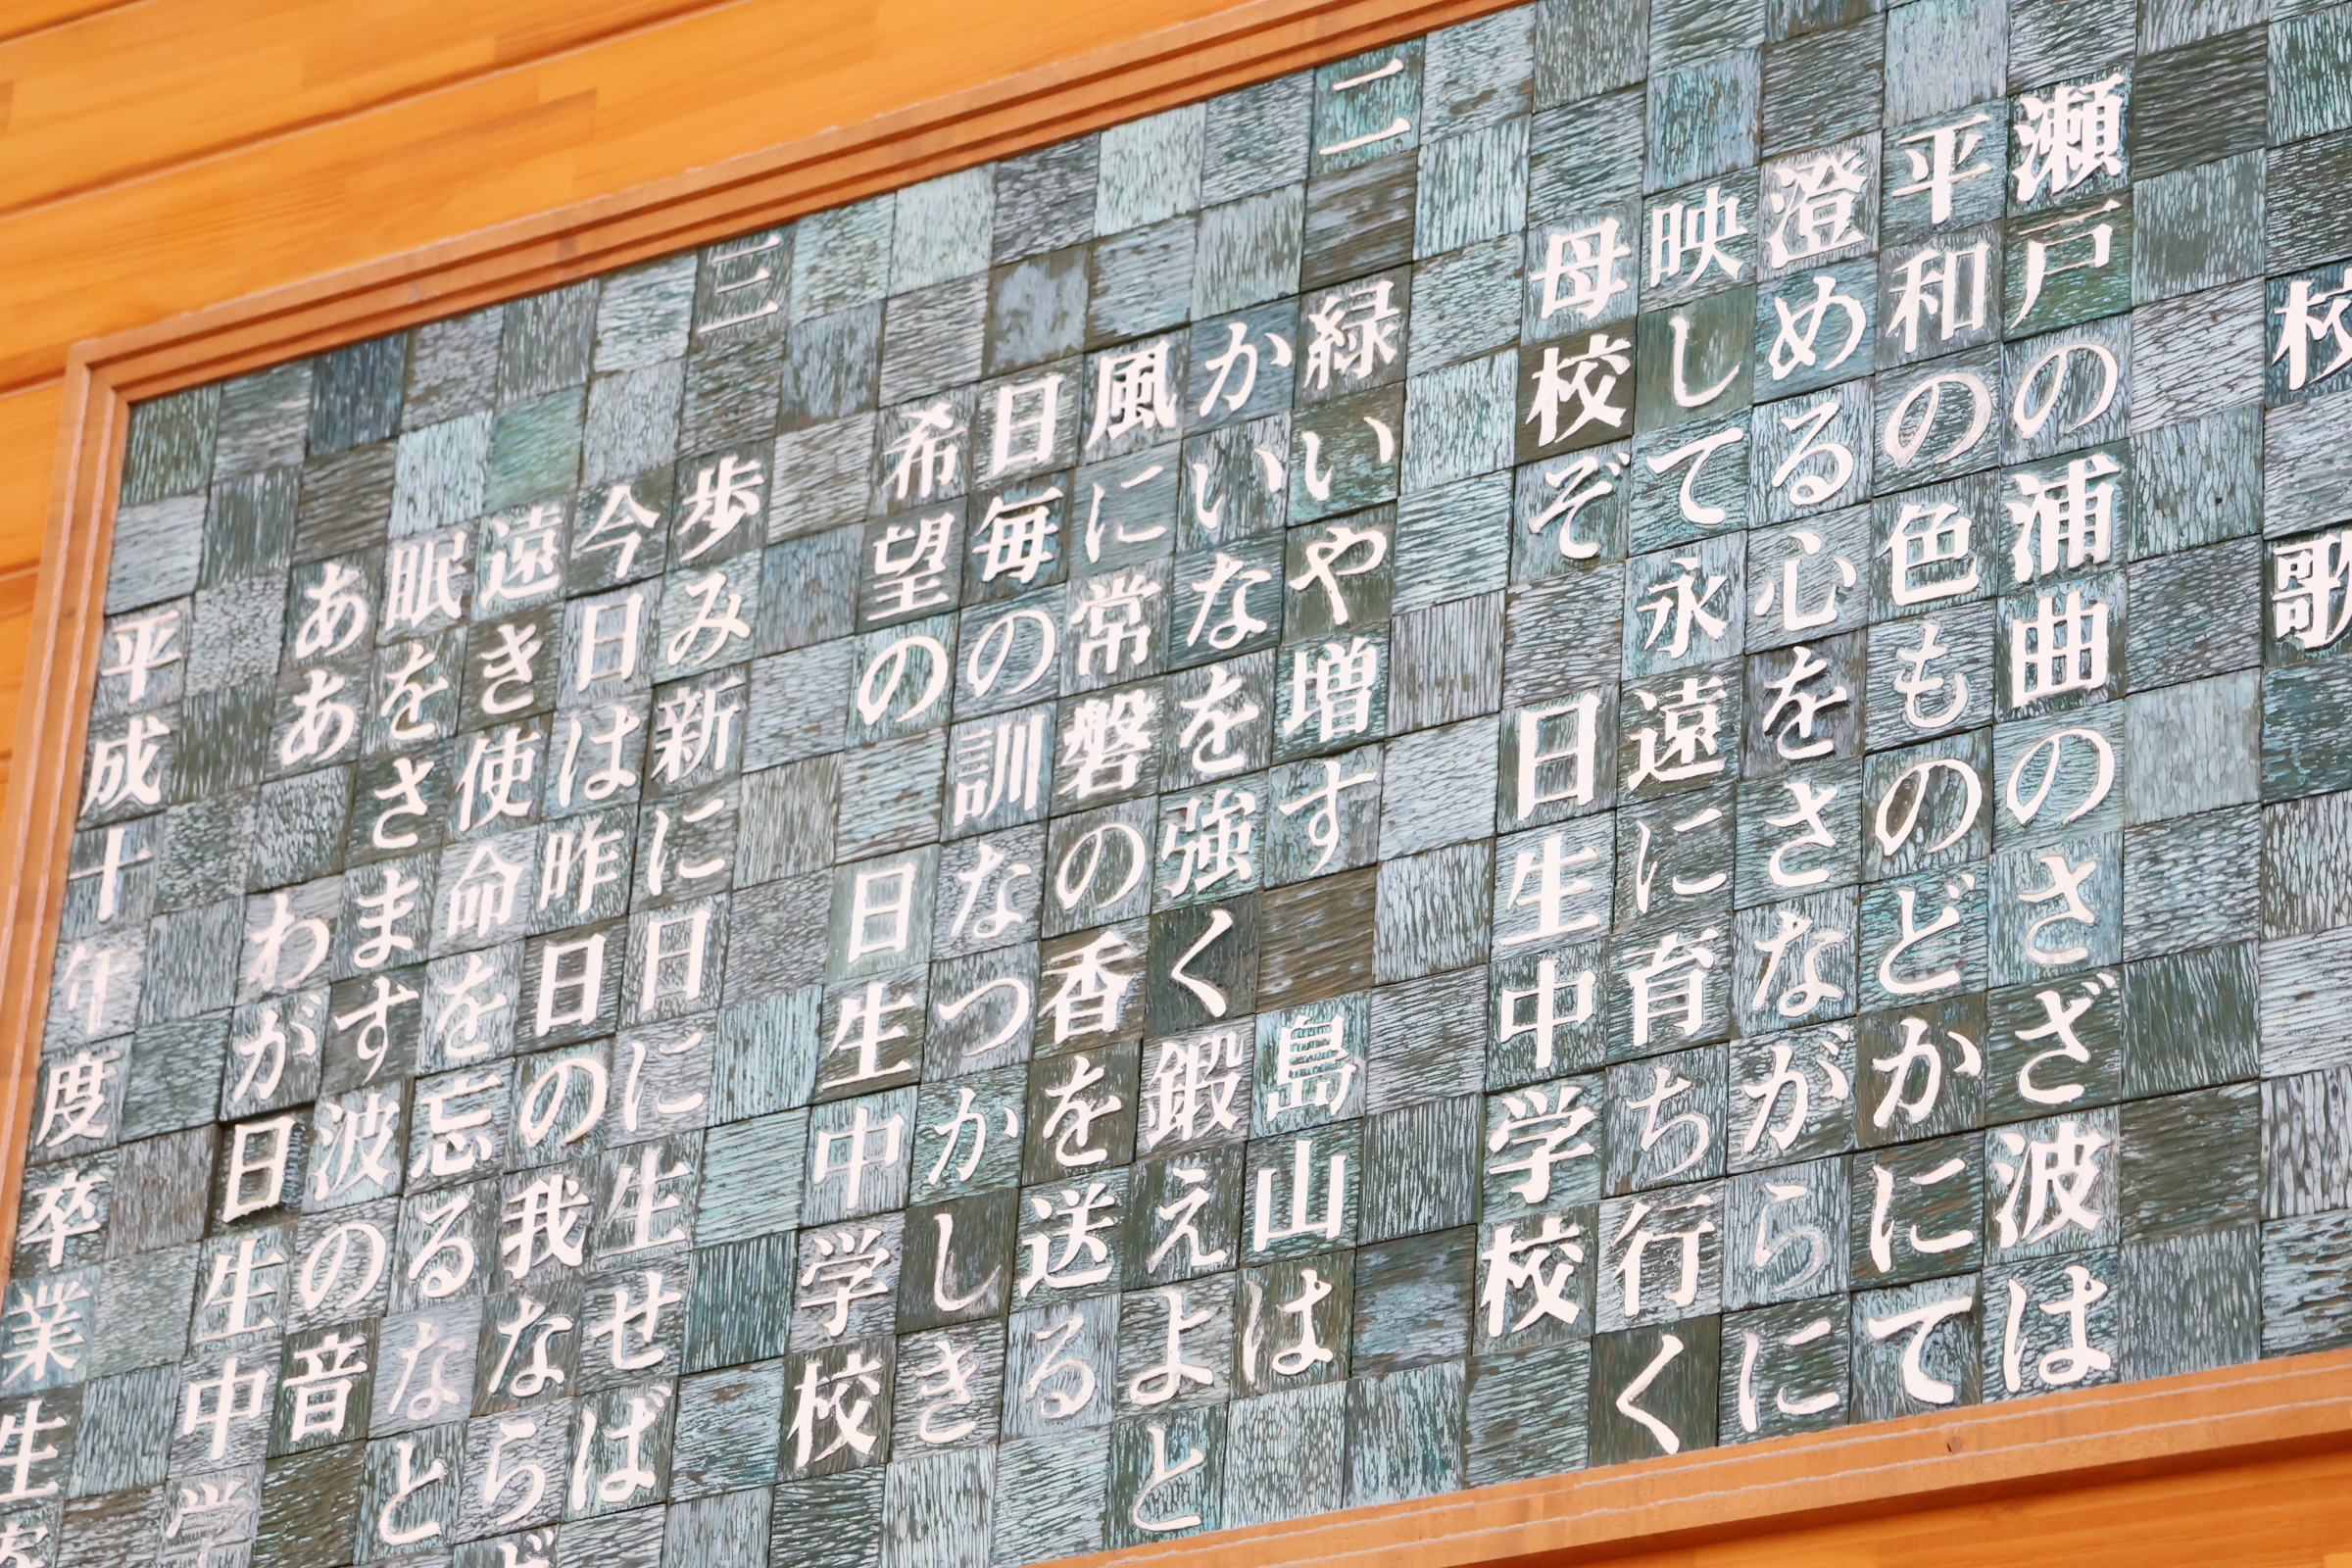 校歌
瀬戸の浦曲のさざ波は
平和の色ものどかにて
澄める心をさながらに
映して永遠に育ち行く
母校ぞ 日生中学校
二
緑いや増す 島山は
かいなを強く鍛えよと
風に常磐の香を送る
日毎の訓なつかしき
希望の 日生中学校
三
歩み新に日に生せば
今日は昨日の我ならど
遠き使命を忘るなと
眠をさます波の音
ああ わが日生中学
平成十年度卒業生